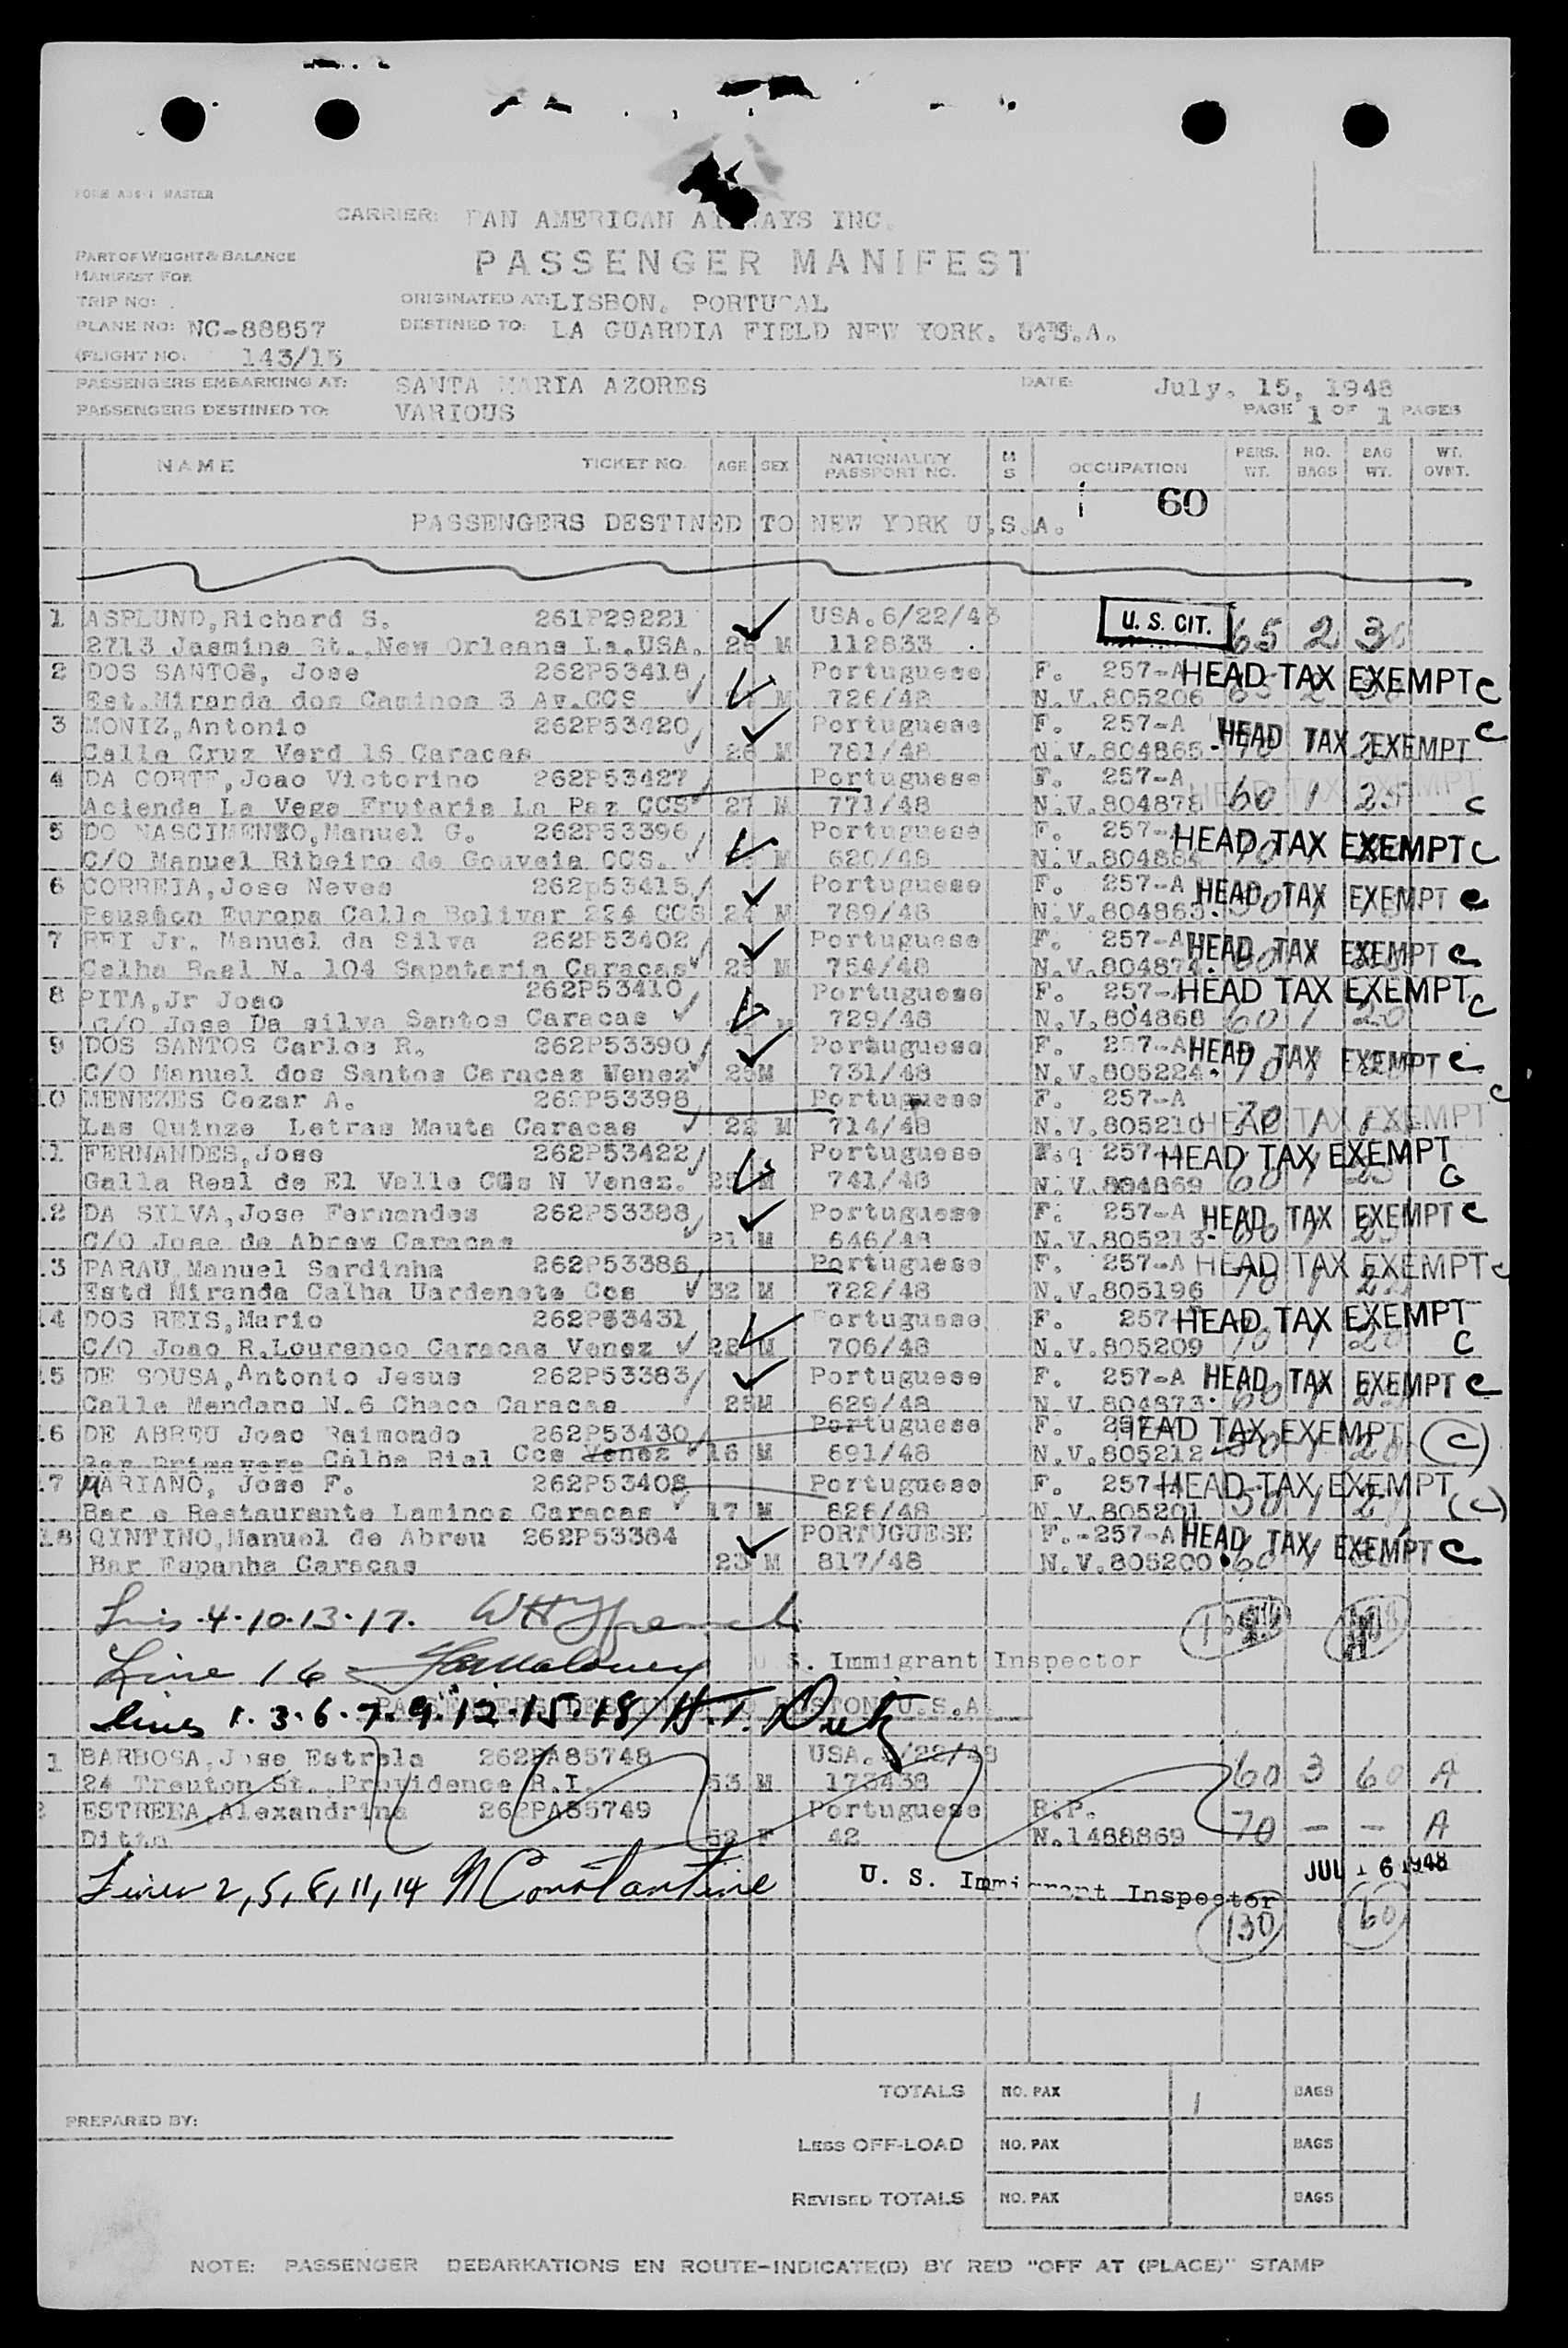 FORM MASTER
CARRIER: PAN AMERICAN AIRWAYS INC.
PART OF WEIGHT & BALANCE
MANIFEST FOR
PASSENGER MANIFEST
TRIP NO:
ORIGINATED AT: LISBON. PORTUGAL
PLANE NO: NC-88857
DESTINED TO: LA GUARDIA FIELD NEW YORK. U.S.A.
(FLIGHT NO. 143/15
PASSENGERS EMBARKING AT: SANTA MARIA AZORES DATE: July. 15, 1948
PASSENGERS DESTINED TO: VARIOUS PAGE 1 OF 1 PAGES
NAME TICKET NO. AGE SEX NATIONALITY PASSPORT NO. M S OCCUPATION PERS. WT. NO. BAGS BAG WT. WT. OVNT.
60
PASSENGERS DESTINED TO NEW YORK U.S.A.
1 ASPLUND,Richard S. 261P29221 USA.6/22/48 U. S. CIT. 65 2 30
2713 Jasmine St.,New Orleans La,USA. 26 M 112833
2 DOS SANTOS, Jose 262P53418 Portuguese F. 257-A HEAD TAX EXEMPT C
Est.Miranda dos Caminos 3 Av.CCS M 726/48 N.V.805206
3 MONIZ,Antonio 262P53420 Portuguese F. 257-A HEAD TAX EXEMPT C
Calle Cruz Verd 16 Caracas 26 M 781/48 N.V.804865
4 DA CORTE,Joao Victorino 262P53427 Portuguese F. 257-A HEAD TAX EXEMPT
Acienda La Vega Frutaria La Paz CCS 27 M 771/48 N.V.804878 60 1 25 C
5 DO NASCIMENTO,Manuel G. 262P53396 Portuguese F. 257-A HEAD TAX EXEMPT C
C/O Manuel Ribeiro de Gouveia CCS. M 620/48 N.V.804884
6 CORREIA,Jose Neves 262p53415 Portuguese F. 257-A HEAD TAX EXEMPT C
Peusãon Europa Calle Bolivar 224 CCS 24 M 789/48 N.V.804863
7 REI Jr. Manuel da Silva 262P53402 Portuguese F. 257-A HEAD TAX EXEMPT C
Calha Real N. 104 Sapataria Caracas 25 M 754/48 N.V.804874
8 PITA,Jr Joao 262P53410 Portuguese F. 257-A HEAD TAX EXEMPT C
C/O Jose Da silva Santos Caracas 729/48 N.V.804868 60 1 20
9 DOS SANTOS Carlos R. 262P53390 Portuguese F. 257-A HEAD TAX EXEMPT C
C/O Manuel dos Santos Caracas Venez 25 M 731/48 N.V.805224
.0 MENEZES Cezar A. 262P53398 Portuguese F. 257-A C
Las Quinze Letras Mauta Caracas 22 M 714/48 N.V.805210 HEAD TAX EXEMPT 70 1
.1 FERNANDES,Jose 262P53422 Portuguese F. 257-A HEAD TAX EXEMPT
Galla Real de El Valle CCs N Venez. M 741/48 N.V.804869 60 1 25 C
.2 DA SILVA,Jose Fernandes 262P53388 Portuguese F. 257-A HEAD TAX EXEMPT C
C/O Jose de Abrew Caracas 21 M 646/48 N.V.805213
.3 PARAU,Manuel Sardinha 262P53386 Portuguese F. 257-A HEAD TAX EXEMPT C
Estd Miranda Calha Uardenete Ccs 32 M 722/48 N.V.805196 70 1
.4 DOS REIS,Mario 262P53431 Portuguese F. 257-A HEAD TAX EXEMPT
C/O Joao R.Lourenco Caracas Venez 28 M 706/48 N.V.805209 70 1 20 C
.5 DE SOUSA,Antonio Jesus 262P53383 Portuguese F. 257-A HEAD TAX EXEMPT C
Calle Mendano N.6 Chaco Caracas 25 M 629/48 N.V.804873
.6 DE ABREU Joao Raimondo 262P53430 Portuguese F. HEAD TAX EXEMPT (C)
Bar Primavera Calha Rial Ccs Venez 16 M 691/48 N.V.805212
.7 MARIANO, Jose F. 262P53408 Portuguese F. 257-A HEAD TAX EXEMPT (C)
Bar e Restaurante Laminos Caracas 17 M 826/48 N.V.805201 50 1
18 QINTINO,Manuel de Abreu 262P53384 PORTUGUESE F.-257-A HEAD TAX EXEMPT C
Bar Espanha Caracas 23 M 817/48 N.V.805200 60 1
Lines .4.10.13.17.
Line 16 U.S. Immigrant Inspector
PASSENGERS DESTINED TO BOSTON U.S.A.
lines 1.3.6.7.9.12.15.18/ H.T.
1 BARBOSA,Jose Estrela 262PA85748 USA. 6/22/48
24 Trenton St.,Providence R.I. 53 M 173438 60 3 60 A
2 ESTRELA,Alexandrina 262PA85749 Portuguese R.P.
Ditto 52 F 42 N.1488869 70 - - A
Lines 2, 5, 8, 11, 14 N Constantine U. S. Immigrant Inspector JUL 16 1948
130 60
TOTALS NO. PAX 1 BAGS
PREPARED BY:
LESS OFF-LOAD NO. PAX BAGS
REVISED TOTALS NO. PAX BAGS
NOTE: PASSENGER DEBARKATIONS EN ROUTE-INDICATE(D) BY RED "OFF AT (PLACE)" STAMP